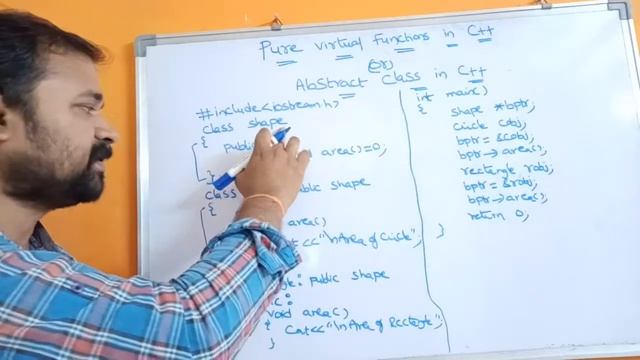 Pure Virtual Functions in C++
(or)
Abstract Class in C++
#include<iostream.h>
class shape
{
area()=0;
}
class public shape
{
area()
"\nArea of Circle";
: public shape
void area()
{ Cout<<"\nArea of Rectangle";
}
int main()
{
shape *bptr;
Circle cobj;
bptr = &cobj;
bptr→area();
rectangle robj;
bptr = &robj;
bptr→area();
return 0;
}